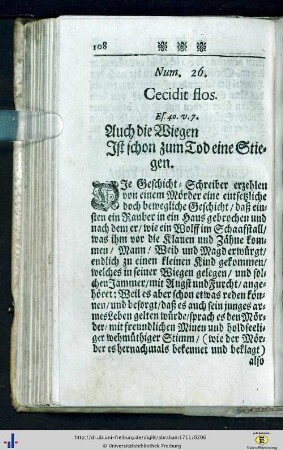 108
Num. 26.
Cecidit flos.
Es. 40. v. 7.
Auch die Wiegen
Ist schon zum Tod eine Stie-
gen.
DIe Geschicht-Schreiber erzehlen
von einem Mörder eine entsetzliche
doch bewegliche Geschicht / daß ein-
sten ein Rauber in ein Haus gebrochen und
nach dem er / wie ein Wolff im Schaafstall /
was ihm vor die Klauen und Zähne kom-
men / Mann / Weib und Magd erwürgt /
endlich zu einen kleinen Kind gekommen /
welches in seiner Wiegen gelegen / und sol-
chen Jammer / mit Angst und Furcht / ange-
höret: Weil es aber schon etwas reden kön-
nen / und besorgt / daß es auch sein junges ar-
mes Leben gelten würde / sprach es den Mör-
der / mit freundlichen Minen und holdseeli-
ger wehmütbiger Stimm / (wie der Mör-
der es hernachmals bekennet und beklagt)
also
http://dl.ub.uni-freiburg.de/diglit/abraham1711/0206
© Universitätsbibliothek Freiburg